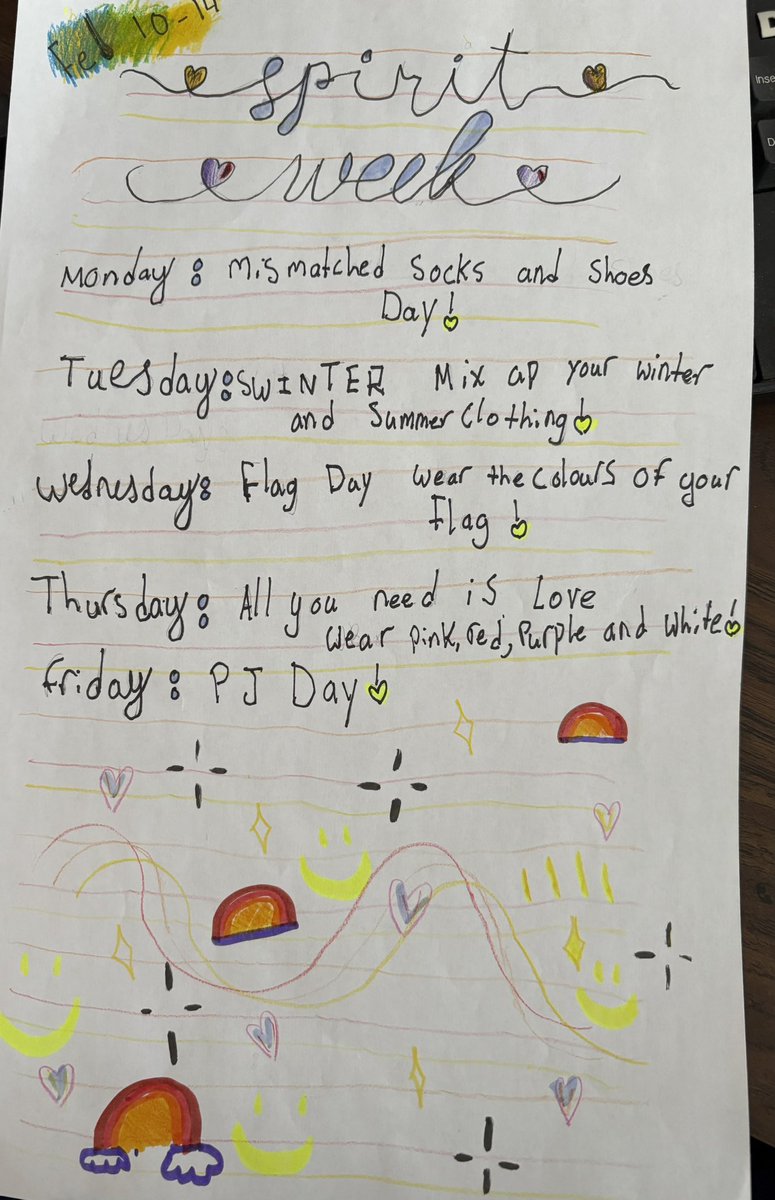 Feb 10-14
spirit
week
Monday: Mismatched Socks and Shoes
Day!
Tuesday: SWINTER Mix up your winter
and Summer Clothing!
Wednesday: Flag Day wear the Colours of your
Flag!
Thursday: All you need is Love
Wear pink, red, Purple and White!
Friday: PJ Day!